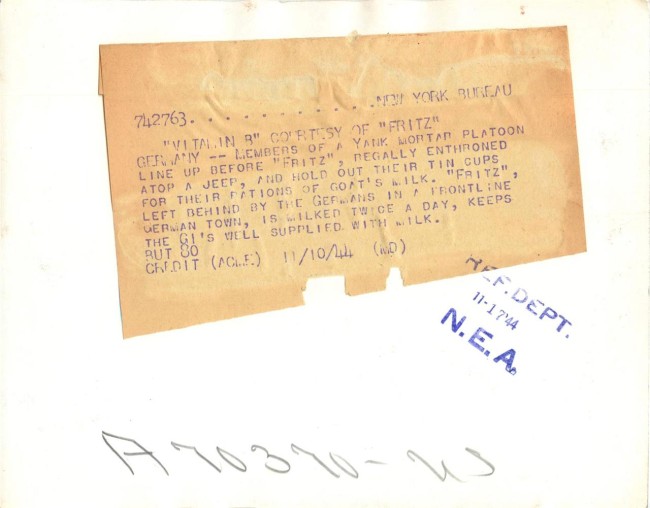 742763. . . . . . . . . . . .NEW YORK BUREAU
"VITAMIN B" COURTESY OF "FRITZ"
GERMANY -- MEMBERS OF A YANK MORTAR PLATOON
LINE UP BEFORE "FRITZ", REGALLY ENTHRONED
ATOP A JEEP, AND HOLD OUT THEIR TIN CUPS
FOR THEIR RATIONS OF GOAT'S MILK. "FRITZ",
LEFT BEHIND BY THE GERMANS IN A FRONTLINE
GERMAN TOWN, IS MILKED TWICE A DAY, KEEPS
THE GI'S WELL SUPPLIED WITH MILK.
BUT 80
CREDIT (ACME) 11/10/44 (MD)
REF. DEPT.
11-17-44
N.E.A.
A70370-US